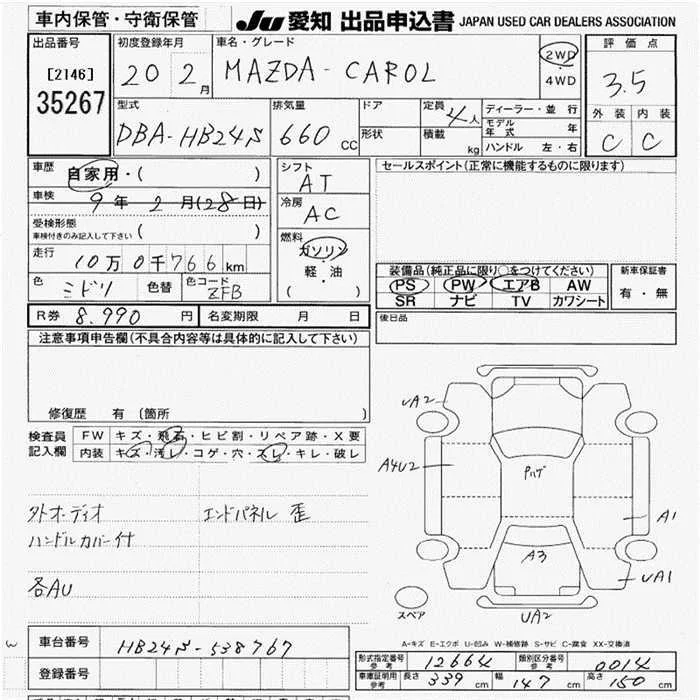 車内保管・守衛保管
JU 愛知 出品申込書 JAPAN USED CAR DEALERS ASSOCIATION
出品番号
[2146]
35267
初度登録年月
20 2月
車名・グレード
MAZDA-CAROL
2WD
4WD
評価点
3.5
外装 内装
C C
型式
DBA-HB24S
排気量
660 CC
ドア
形状
定員 4人
積載 kg
ディーラー・並行
モデル年式 年
ハンドル 左・右
車歴 自家用・( )
車検 9年 2月(28日)
受検形態
車検付きのみ記入して下さい ( )
走行 10万0千766km
色 ミドリ 色替 色コード ZFB
シフト
AT
冷房
AC
燃料
ガソリン
・
軽・油
( )
セールスポイント(正常に機能するものに限ります)
装備品(純正品に限り○をつけてください)
PS PW エアB AW
SR ナビ TV カワシート
新車保証書
有・無
R券 8.990 円 名変期限 月 日
後日品
注意事項申告欄(不具合内容等は具体的に記入して下さい)
修復歴 有 (箇所 )
検査員記入欄
FW キズ・飛石・ヒビ割・リペア跡・X要
内装 キズ・汚レ・コゲ・穴・スレ・キレ・破レ
外オーディオ エンドパネル 歪
ハンドルカバー付
各AU
UA2
A4U2
Pハゲ
A1
A3
UA1
UA2
スペア
A-キズ E-エクボ U-凹み W-補修跡 S-サビ C-腐食 XX-交換済
車台番号 HB24S-538767
登録番号
形式指定番号 参考 12664 類別区分番号 参考 0014
車庫証明用 参考 長さ 339 cm 幅 147 cm 高さ 150 cm